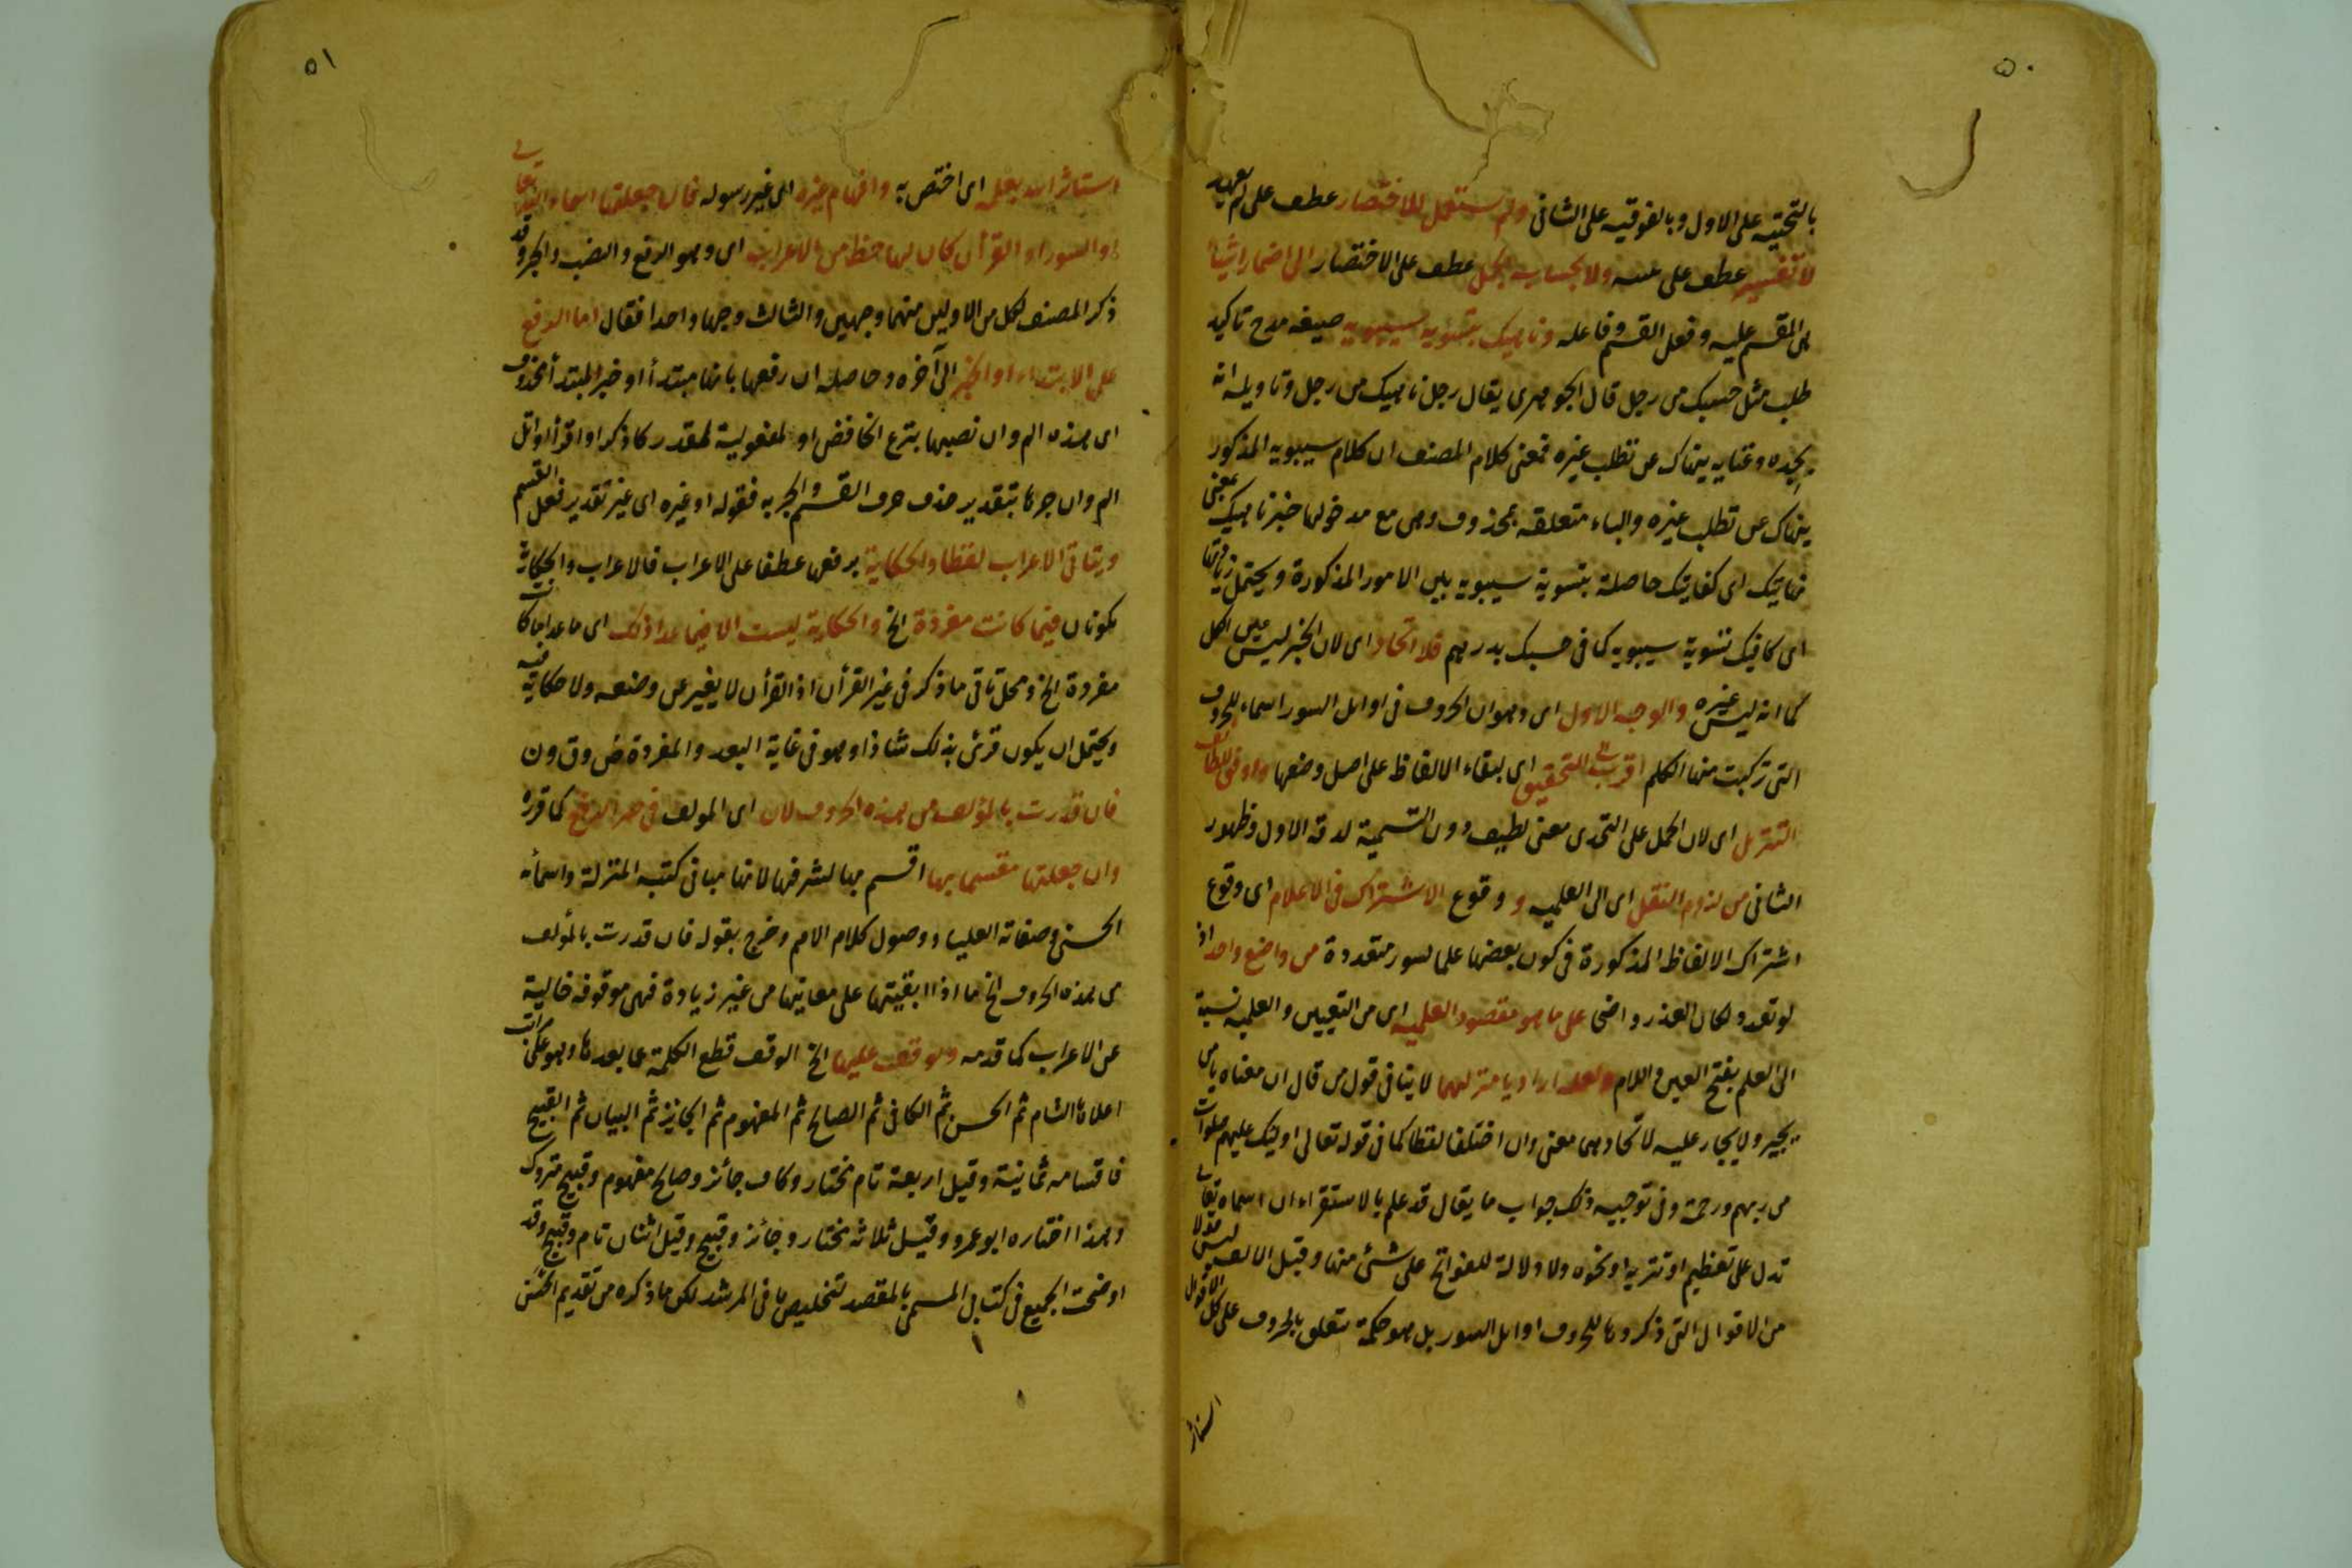 ٥٠
بالتحتيه على الاول وبالفوقيه على الثانى ولم يستعمل للاختصار عطف على لم يعهد
لا تفسير عطف على ولا بحساب الجمل عطف على الاختصار الى اضمار اشياء
هى المقسم عليه وفعل القسم وفاعله وناهيك بتسوية سيبويه صيغه مدح تاكيد
طلب مثل حسبك من رجل قال الجوهرى يقال رجل ناهيك من رجل وتاويله انه
بجده وغنايه ينهاك عن تطلب غيره فمعنى كلام المصنف ان كلام سيبويه المذكور
ينهاك عن تطلب غيره والباء متعلقه بمحذوف وهى مع مدخولها خبر ناهيك بمعنى
نهايتك اى كفايتك حاصلة بتسوية سيبويه بين الامور المذكورة ويحتمل زيادتها
اى كافيك تسوية سيبويه كما فى حسبك بدرهم فلا اتحاد اى لان الخبر ليس عين الكل
كما انه ليس غيره والوجه الاول اى وهو ان الحروف فى اوايل السور اسماء للحروف
التى تركبت منها الكلم اقرب الى التحقيق اى لبقاء الالفاظ على اصل وضعها واوفق للطائف
التنزيل اى لان الحمل على التحدى معنى لطيف دون التسمية لدقة الاول وظهور
الثانى من لزوم النقل اى الى العلميه و وقوع الاشتراك فى الاعلام اى وقوع
اشتراك الالفاظ المذكورة فى كون بعضها علما لسور متعددة من واضع واحد اذ
لو تعدد لكان العذر واضحا على ما هو مقصود العلميه اى من التعيين والعلميه نسبة
الى العلم بفتح العين واللام ولعله اراد يا منزلهما لا ينافى قول من قال ان معناه يا من
يجير ولا يجار عليه لاتحادهما معنى وان اختلفا لفظا كما فى قوله تعالى اوليك عليهم صلوات
من ربهم ورحمة وفى توجيه ذلك جواب ما يقال قد علم بالاستقراء ان اسماه تعالى
تدل على تعظيم او تنزيه او نحوه ولا دلالة للفواتح على شئ منها وقيل الالف ليس قولا
من الاقوال التى ذكروها للحروف اوايل السور بل هو حكمة تتعلق بالحروف على كل الاقوال
استاثر
٥١
استاثر الله بعلمه اى اختص به وافهام غيره اى غير رسوله فان جعلتها اسماء الله تعالى
او السور او القرأن كان لها حظ من الاعراب اى وهو الرفع والنصب والجر وقد
ذكر المصنف لكل من الاولين منهما وجهين والثالث وجها واحدا فقال اما الرفع
على الابتداء او الخبر الى آخره وحاصله ان رفعها بانها مبتدأ او خبر المبتدأ محذوف
اى هذه الم وان نصبها بنزع الخافض او لمفعولية لمقدر كاذكر او اقرأ او اتل
الم وان جرها بتقدير حذف حرف القسم والجر به فقوله او غيره اى غير تقدير فعل القسم
ويتاتى الاعراب لفظا والحكاية برفعها عطفا على الاعراب فالاعراب والحكاية
يكونان فيما كانت مفردة الخ والحكاية ليست الا فيما عدا ذلك اى ما عدا ما كانت
مفردة الخ ومحل تاتى ما ذكر فى غير القرأن اذ القرأن لا يغير عن وضعه ولا حكاية فيه
ويحتمل ان يكون قرئ بذلك شاذا وهو فى غاية البعد والمفردة ص وق ون
فان قدرت بالمؤلف من هذه الحروف كان اى المولف فى حيز الرفع كما قرره
وان جعلتها مقسما بها اقسم بها لشرفها لانها مبانى كتبه المنزلة واسمائه
الحسنى وصفاته العليا واصول كلام الامم وخرج بقوله فان قدرت بالمؤلف
من هذه الحروف الخ ما اذا ابقيتها على معانيها من غير زيادة فهى موقوفه خالية
عن الاعراب كما قدمه ويوقف عليها الخ الوقف قطع الكلمة عما بعدها وهو على مراتب
اعلاها التام ثم الحسن ثم الكافى ثم الصالح ثم المفهوم ثم الجائز ثم البيان ثم القبيح
فاقسامه ثمانية وقيل اربعة تام مختار وكاف جائز وصالح مفهوم وقبيح متروك
وهذا اختاره ابو عمرو وقيل ثلاثه مختار وجائز وقبيح وقيل اثنان تام وقبيح وقد
اوضحت الجميع فى كتابى المسمى بالمقصد لتخليص ما فى المرشد لكن ما ذكره من تقديم الحسن